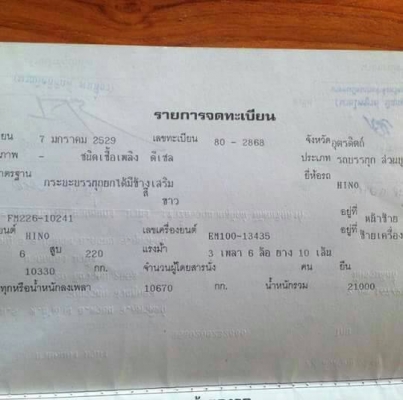 รายการจดทะเบียน
ยน 7 มกราคม 2529 เลขทะเบียน 80 - 2868 จังหวัด อุตรดิตถ์
ภาพ - ชนิดเชื้อเพลิง ดีเซล ประเภท รถบรรทุก ส่วนบุ
มาตรฐาน กระบะบรรทุกยกได้มีข้างเสริม ยี่ห้อรถ HINO
สี ขาว
FM226-10241 อยู่ที่ หน้าซ้าย
ยนต์ HINO เลขเครื่องยนต์ EM100-13435 อยู่ที่ ซ้ายเครื่อง
6 สูบ 220 แรงม้า 3 เพลา 6 ล้อ ยาง 10 เส้น
10330 กก. จำนวนผู้โดยสารนั่ง คน ยืน
ทุกหรือน้ำหนักลงเพลา 10670 กก. น้ำหนักรวม 21000